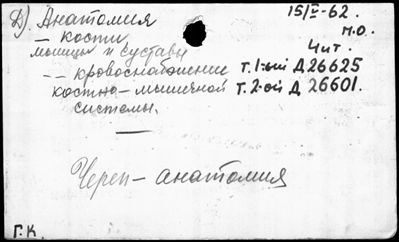 Д) Анатомия
15/II-62.
— кости
м.о.
мышцы и суставы
Чит.
-- кровоснабжение т.1-ый Д26625
костно-мышечной т.2-ой Д 26601.
системы.
Череп - анатомия
Г.К.